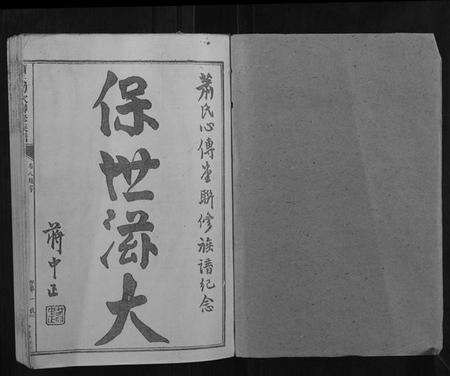 萧氏心傳堂聯修族譜纪念
保世滋大
蔣中正